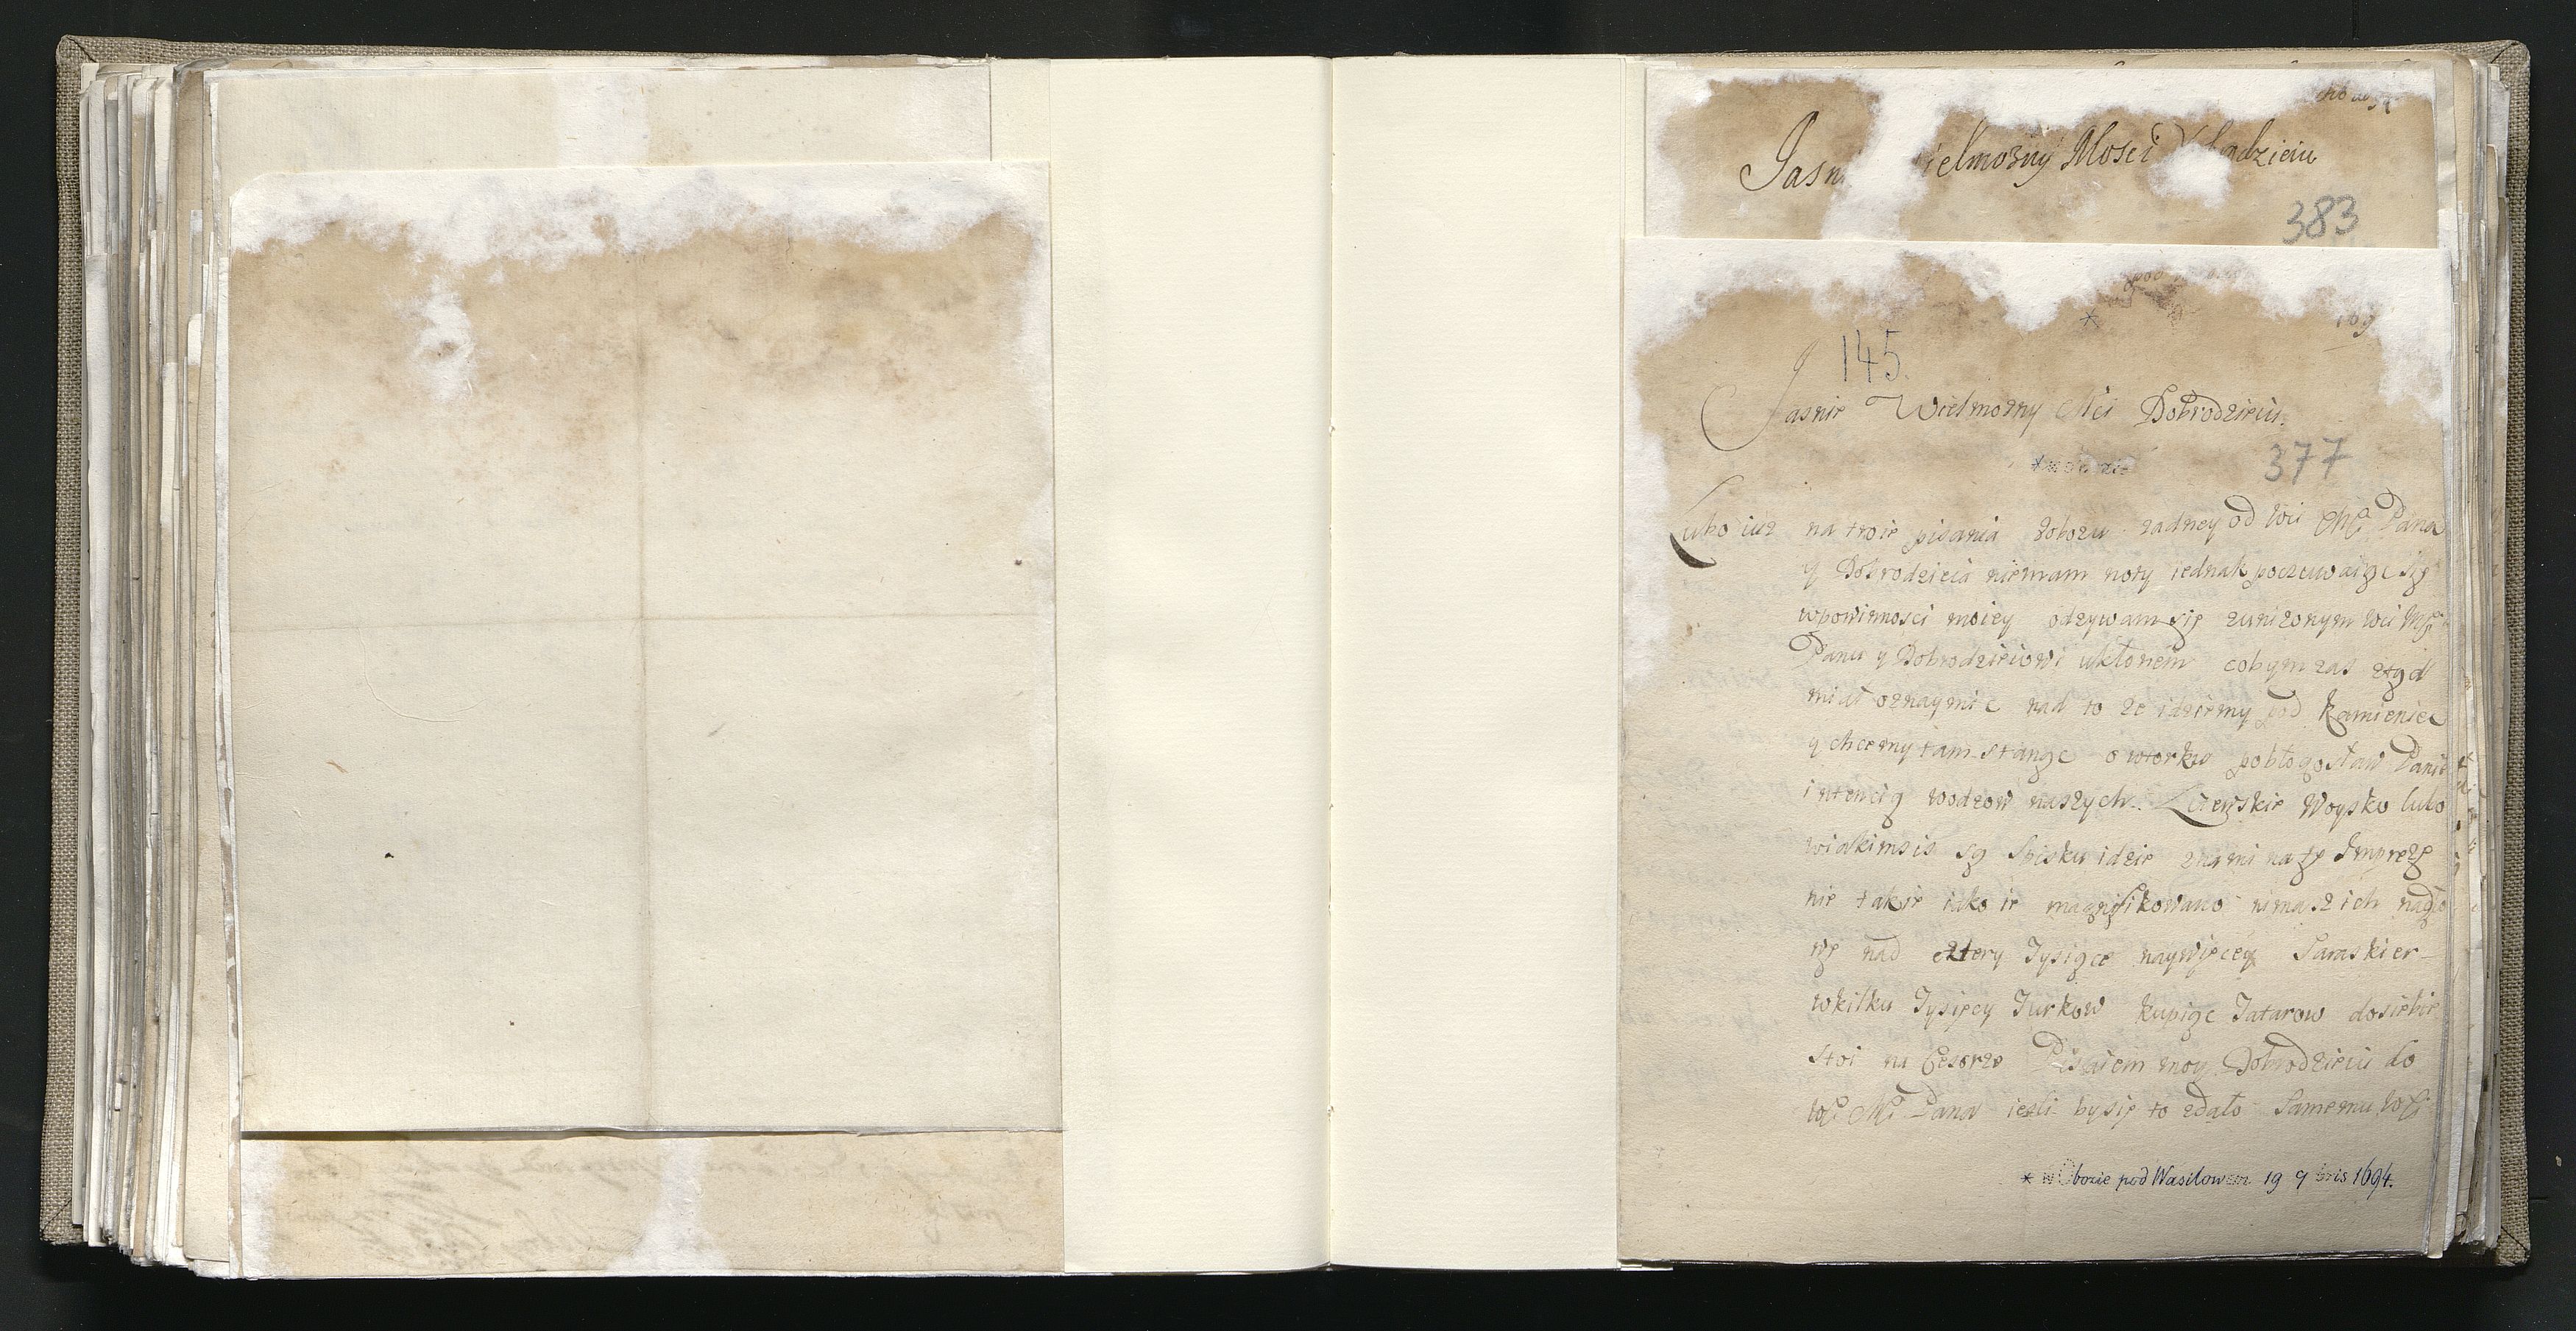 Jasn ielmożny Mości
383
pod
169
145.
Jasnie Wielmożny Mci Dobrodzieiu.
377
Lubo iuz na troie pisania zobozu zadney od WM Pana
y Dobrodzieia niemam noty iednak poczuwaiąc się
wpowinnosci moiey odzywam się zunizonym
Panu y Dobrodzieiowi ukłonem cobym zas ztąd
miał oznaymic nad to ze idziemy pod Kamieniec
y chcemy tam stanąc o wtorku pobłogosław Panie
intencią wodzow naszych. Litewskie Woysko lubo
wiakimsis są Spisku idzie znami na tę Imprezę
nie takie iako ie magnifikowano nimasz ich
nad cztery Tysiące naywięcey Saraskier
wkilku Tysięcy Turkow kupiąc Tatarow dosiebie
Stoi na Cecorze Pisałem moy Dobrodzieiu do
Pana iezli bysie to zdało Samemu
* w Obozie pod Wasilowem 19 9 bris 1694.